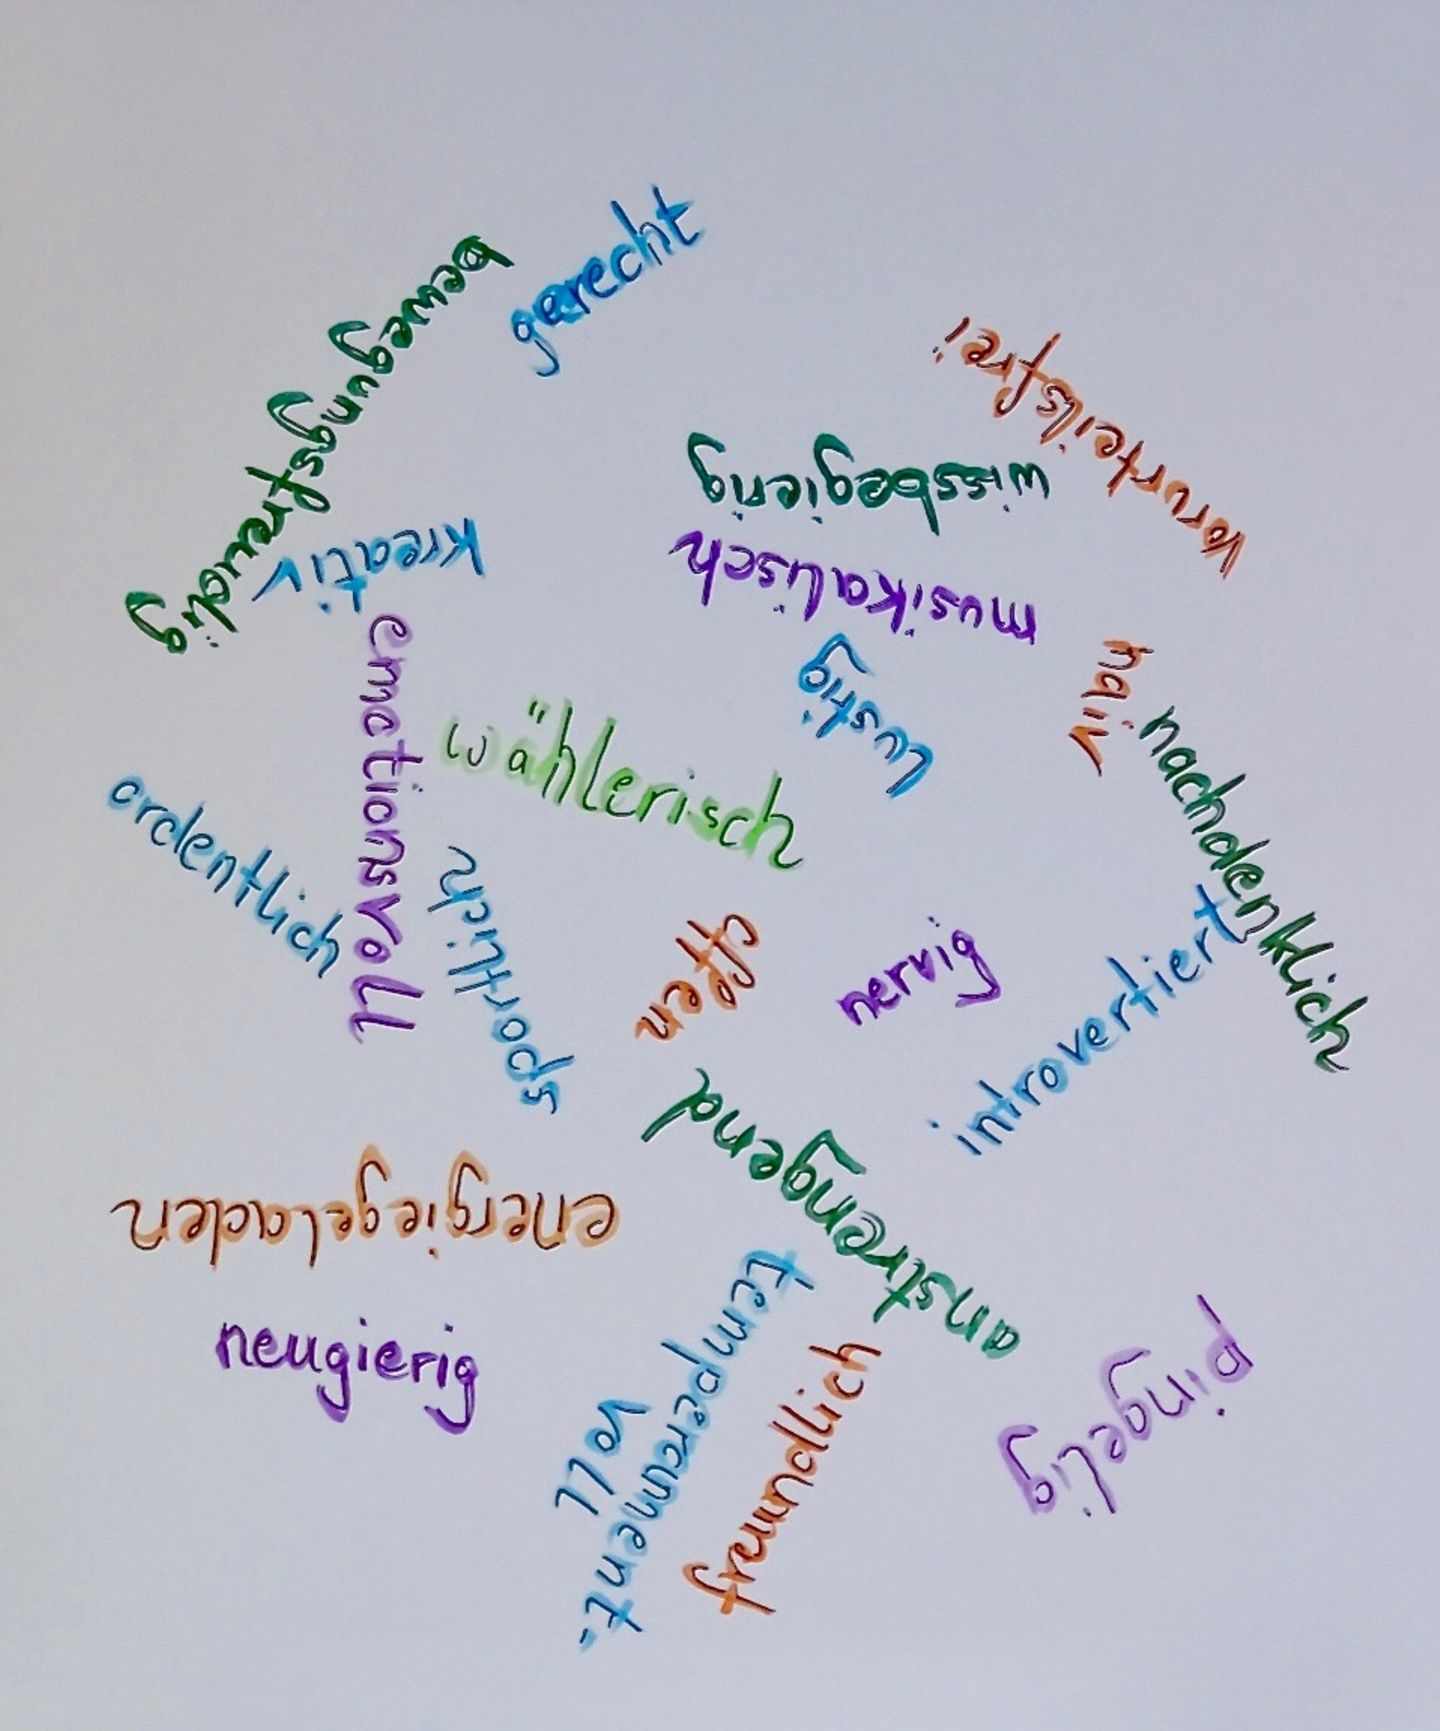 gerecht
bewegungsfreudig
vorurteilsfrei
wissbegierig
kreativ
musikalisch
emotionsvoll
lustig
naiv
wählerisch
nachdenklich
ordentlich
sportlich
offen
nervig
introvertiert
anstrengend
energiegeladen
temperamment-
voll
neugierig
freundlich
pingelig